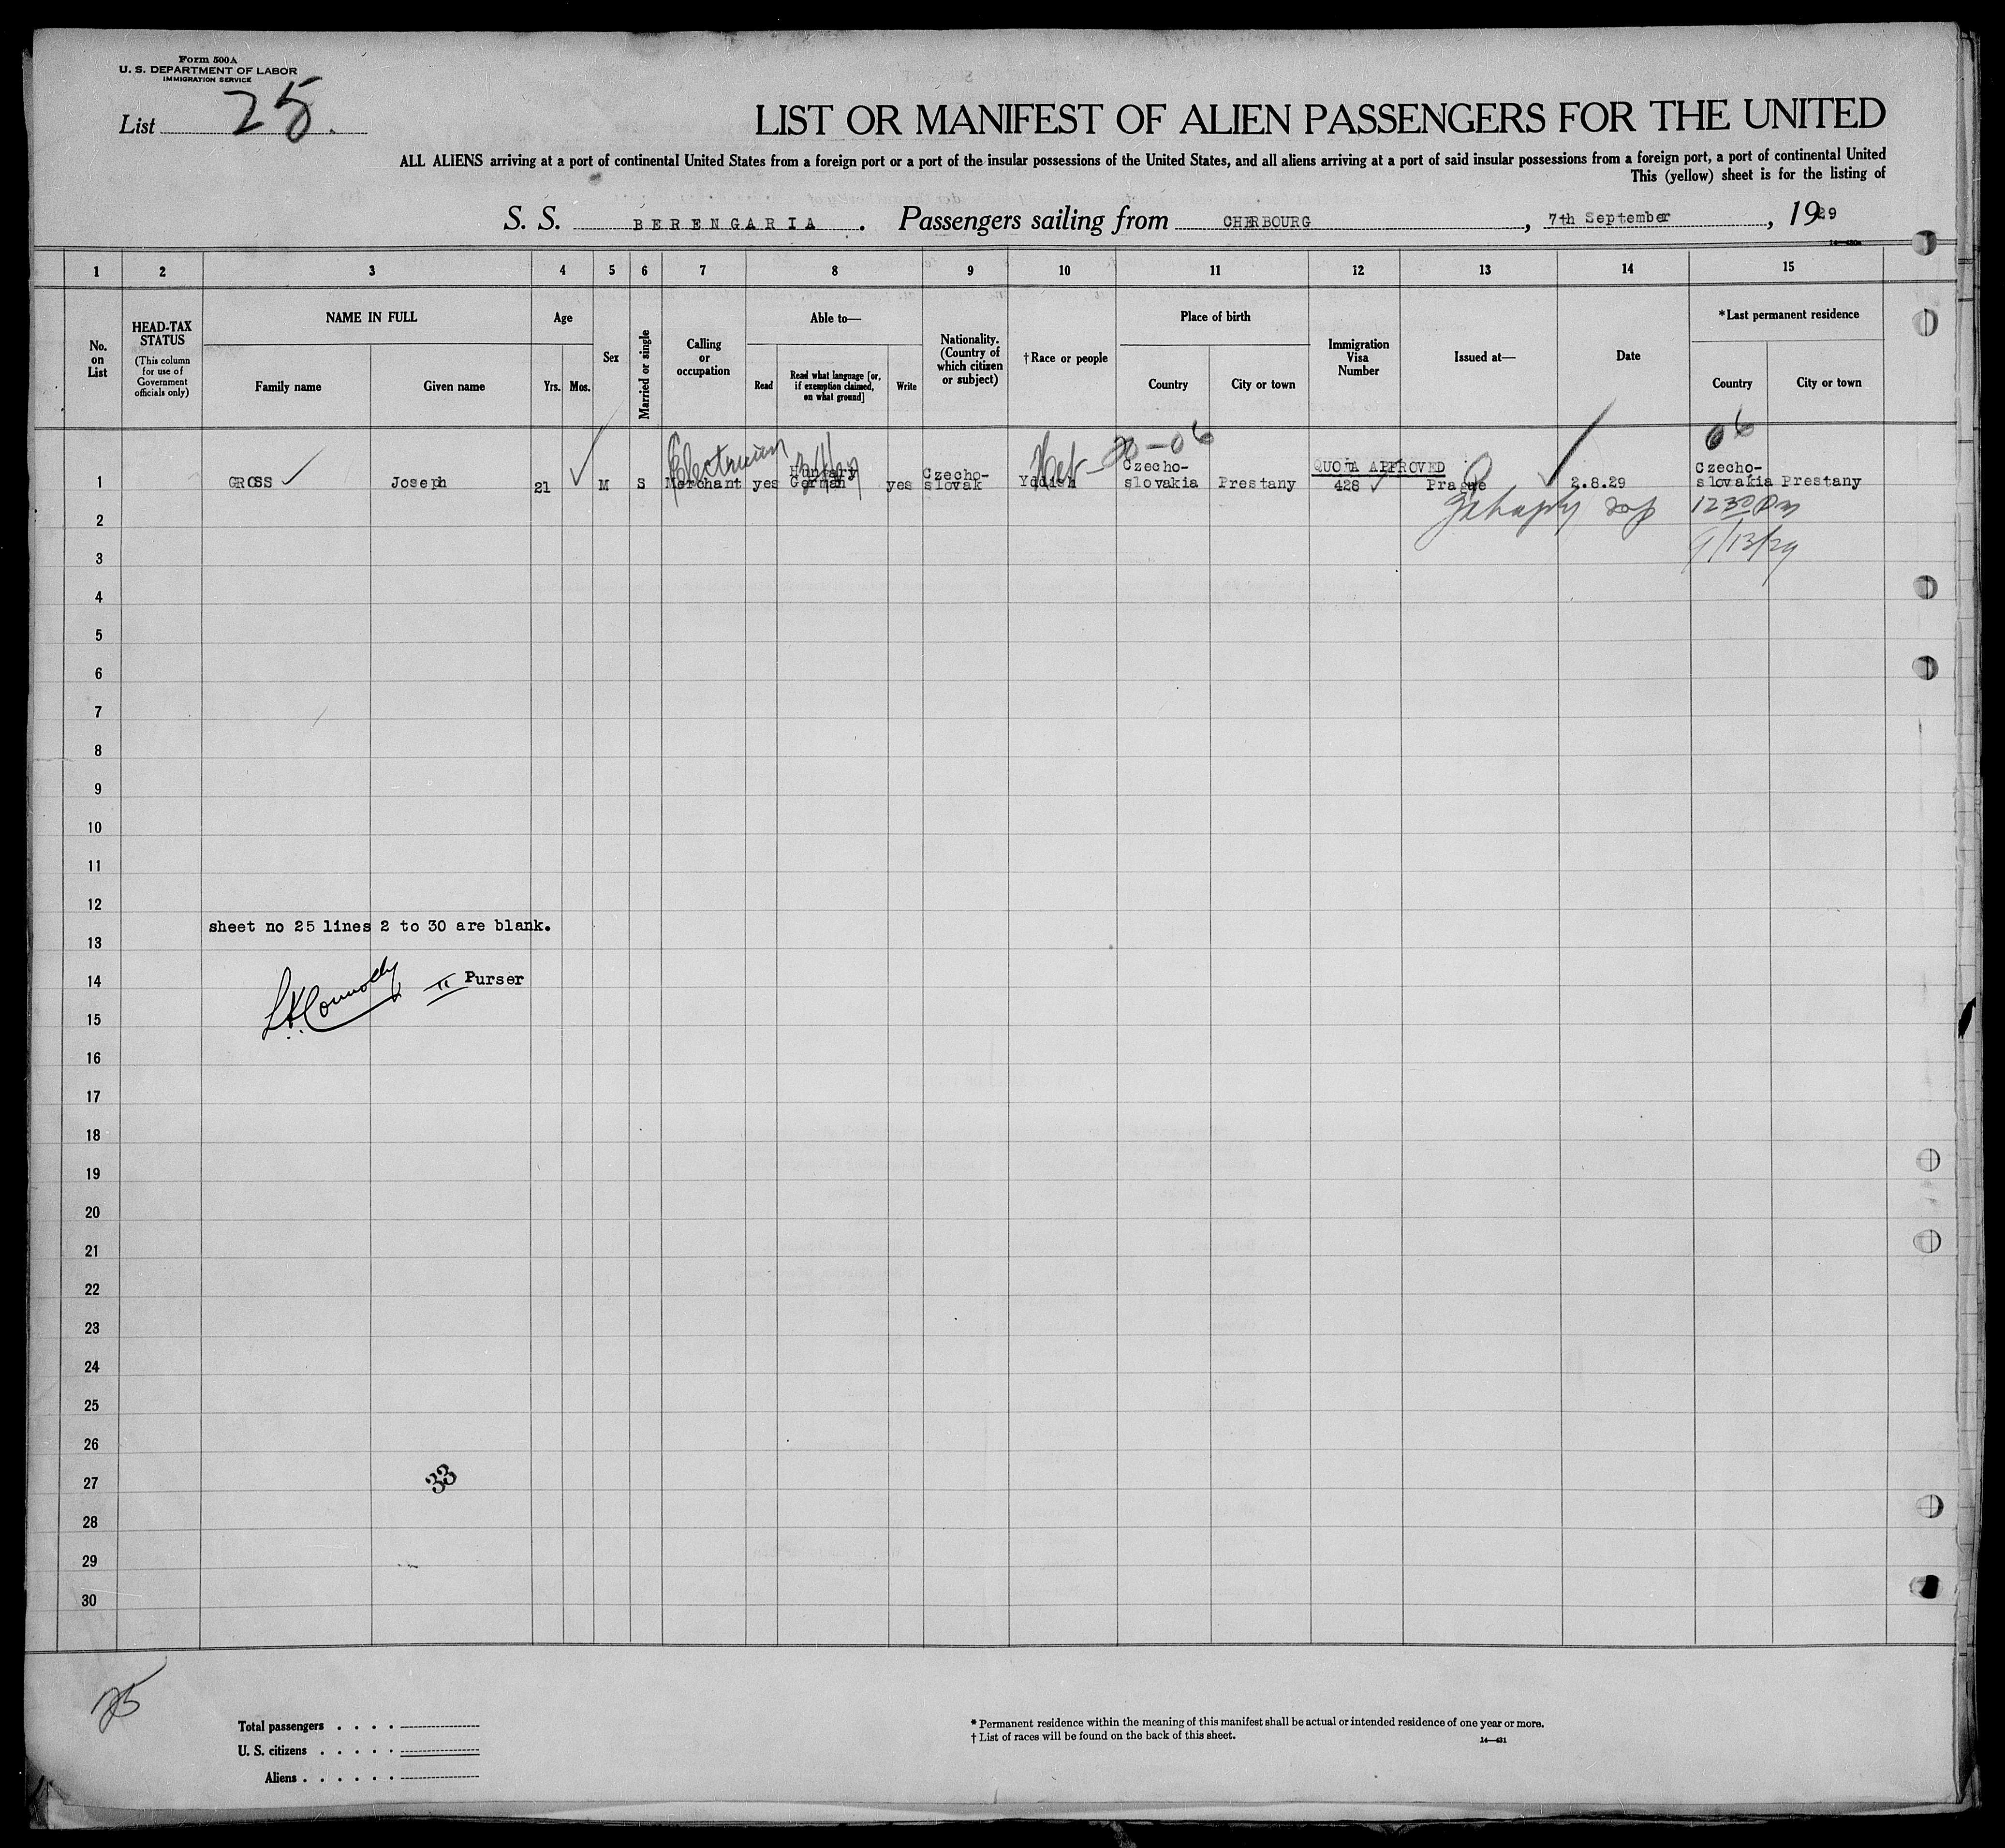 Form 500A
U. S. DEPARTMENT OF LABOR
IMMIGRATION SERVICE
List 25.
LIST OR MANIFEST OF ALIEN PASSENGERS FOR THE UNITED
ALL ALIENS arriving at a port of continental United States from a foreign port or a port of the insular possessions of the United States, and all aliens arriving at a port of said insular possessions from a foreign port, a port of continental United
This (yellow) sheet is for the listing of
S. S. BERENGARIA. Passengers sailing from CHERBOURG, 7th September, 1929
1 2 3 4 5 6 7 8 9 10 11 12 13 14 15
No. on List
HEAD-TAX STATUS
(This column for use of Government officials only)
NAME IN FULL
Family name
Given name
Age
Yrs. Mos.
Sex
Married or single
Calling or occupation
Able to—
Read
Read what language [or, if exemption claimed, on what ground]
Write
Nationality. (Country of which citizen or subject)
†Race or people
Place of birth
Country
City or town
Immigration Visa Number
Issued at—
Date
*Last permanent residence
Country
City or town
Electrician 20-06 06
1 GROSS Joseph 21 M S Merchant yes Hungary German yes Czecho-slovak Yddish Heb- Czecho-slovakia Prestany QUOTA APPROVED 428 Prague 2.8.29 Czecho-slovakia Prestany
2 1230 Pm
3 9/13/29
4
5
6
7
8
9
10
11
12
sheet no 25 lines 2 to 30 are blank.
13
14 L.H. Connolly II Purser
15
16
17
18
19
20
21
22
23
24
25
26
27 33
28
29
30
25
Total passengers
U. S. citizens
Aliens
* Permanent residence within the meaning of this manifest shall be actual or intended residence of one year or more.
† List of races will be found on the back of this sheet.
14—431